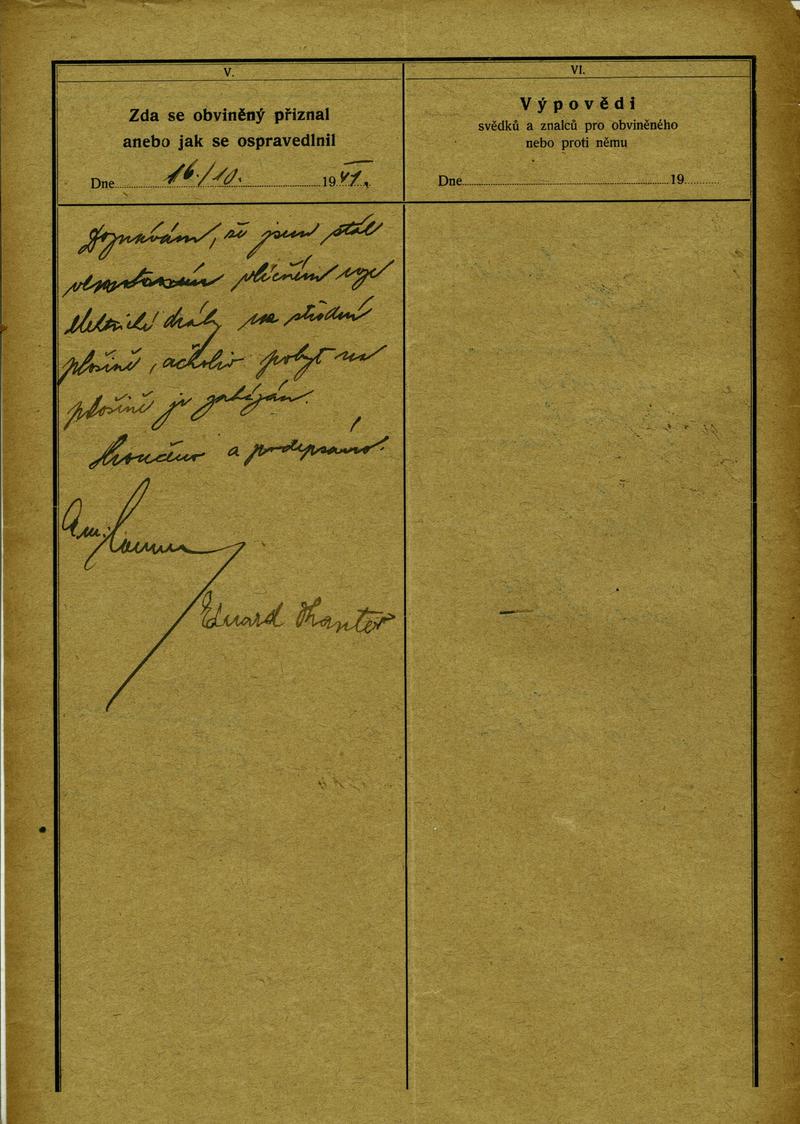 V.
Zda se obviněný přiznal
anebo jak se ospravedlnil
Dne 16./10. 1941.
Doznávám, že jsem stál
ve vlečném voze
elektrické dráhy na střední
plošině, ačkoliv pobyt na
plošině je zakázán.
Skončeno a podepsáno.
Eduard Kantor
VI.
Výpovědi
svědků a znalců pro obviněného
nebo proti němu
Dne 19